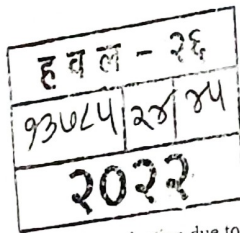 हवल - २६
१३७८५ २४ ४५
२०२२
due to